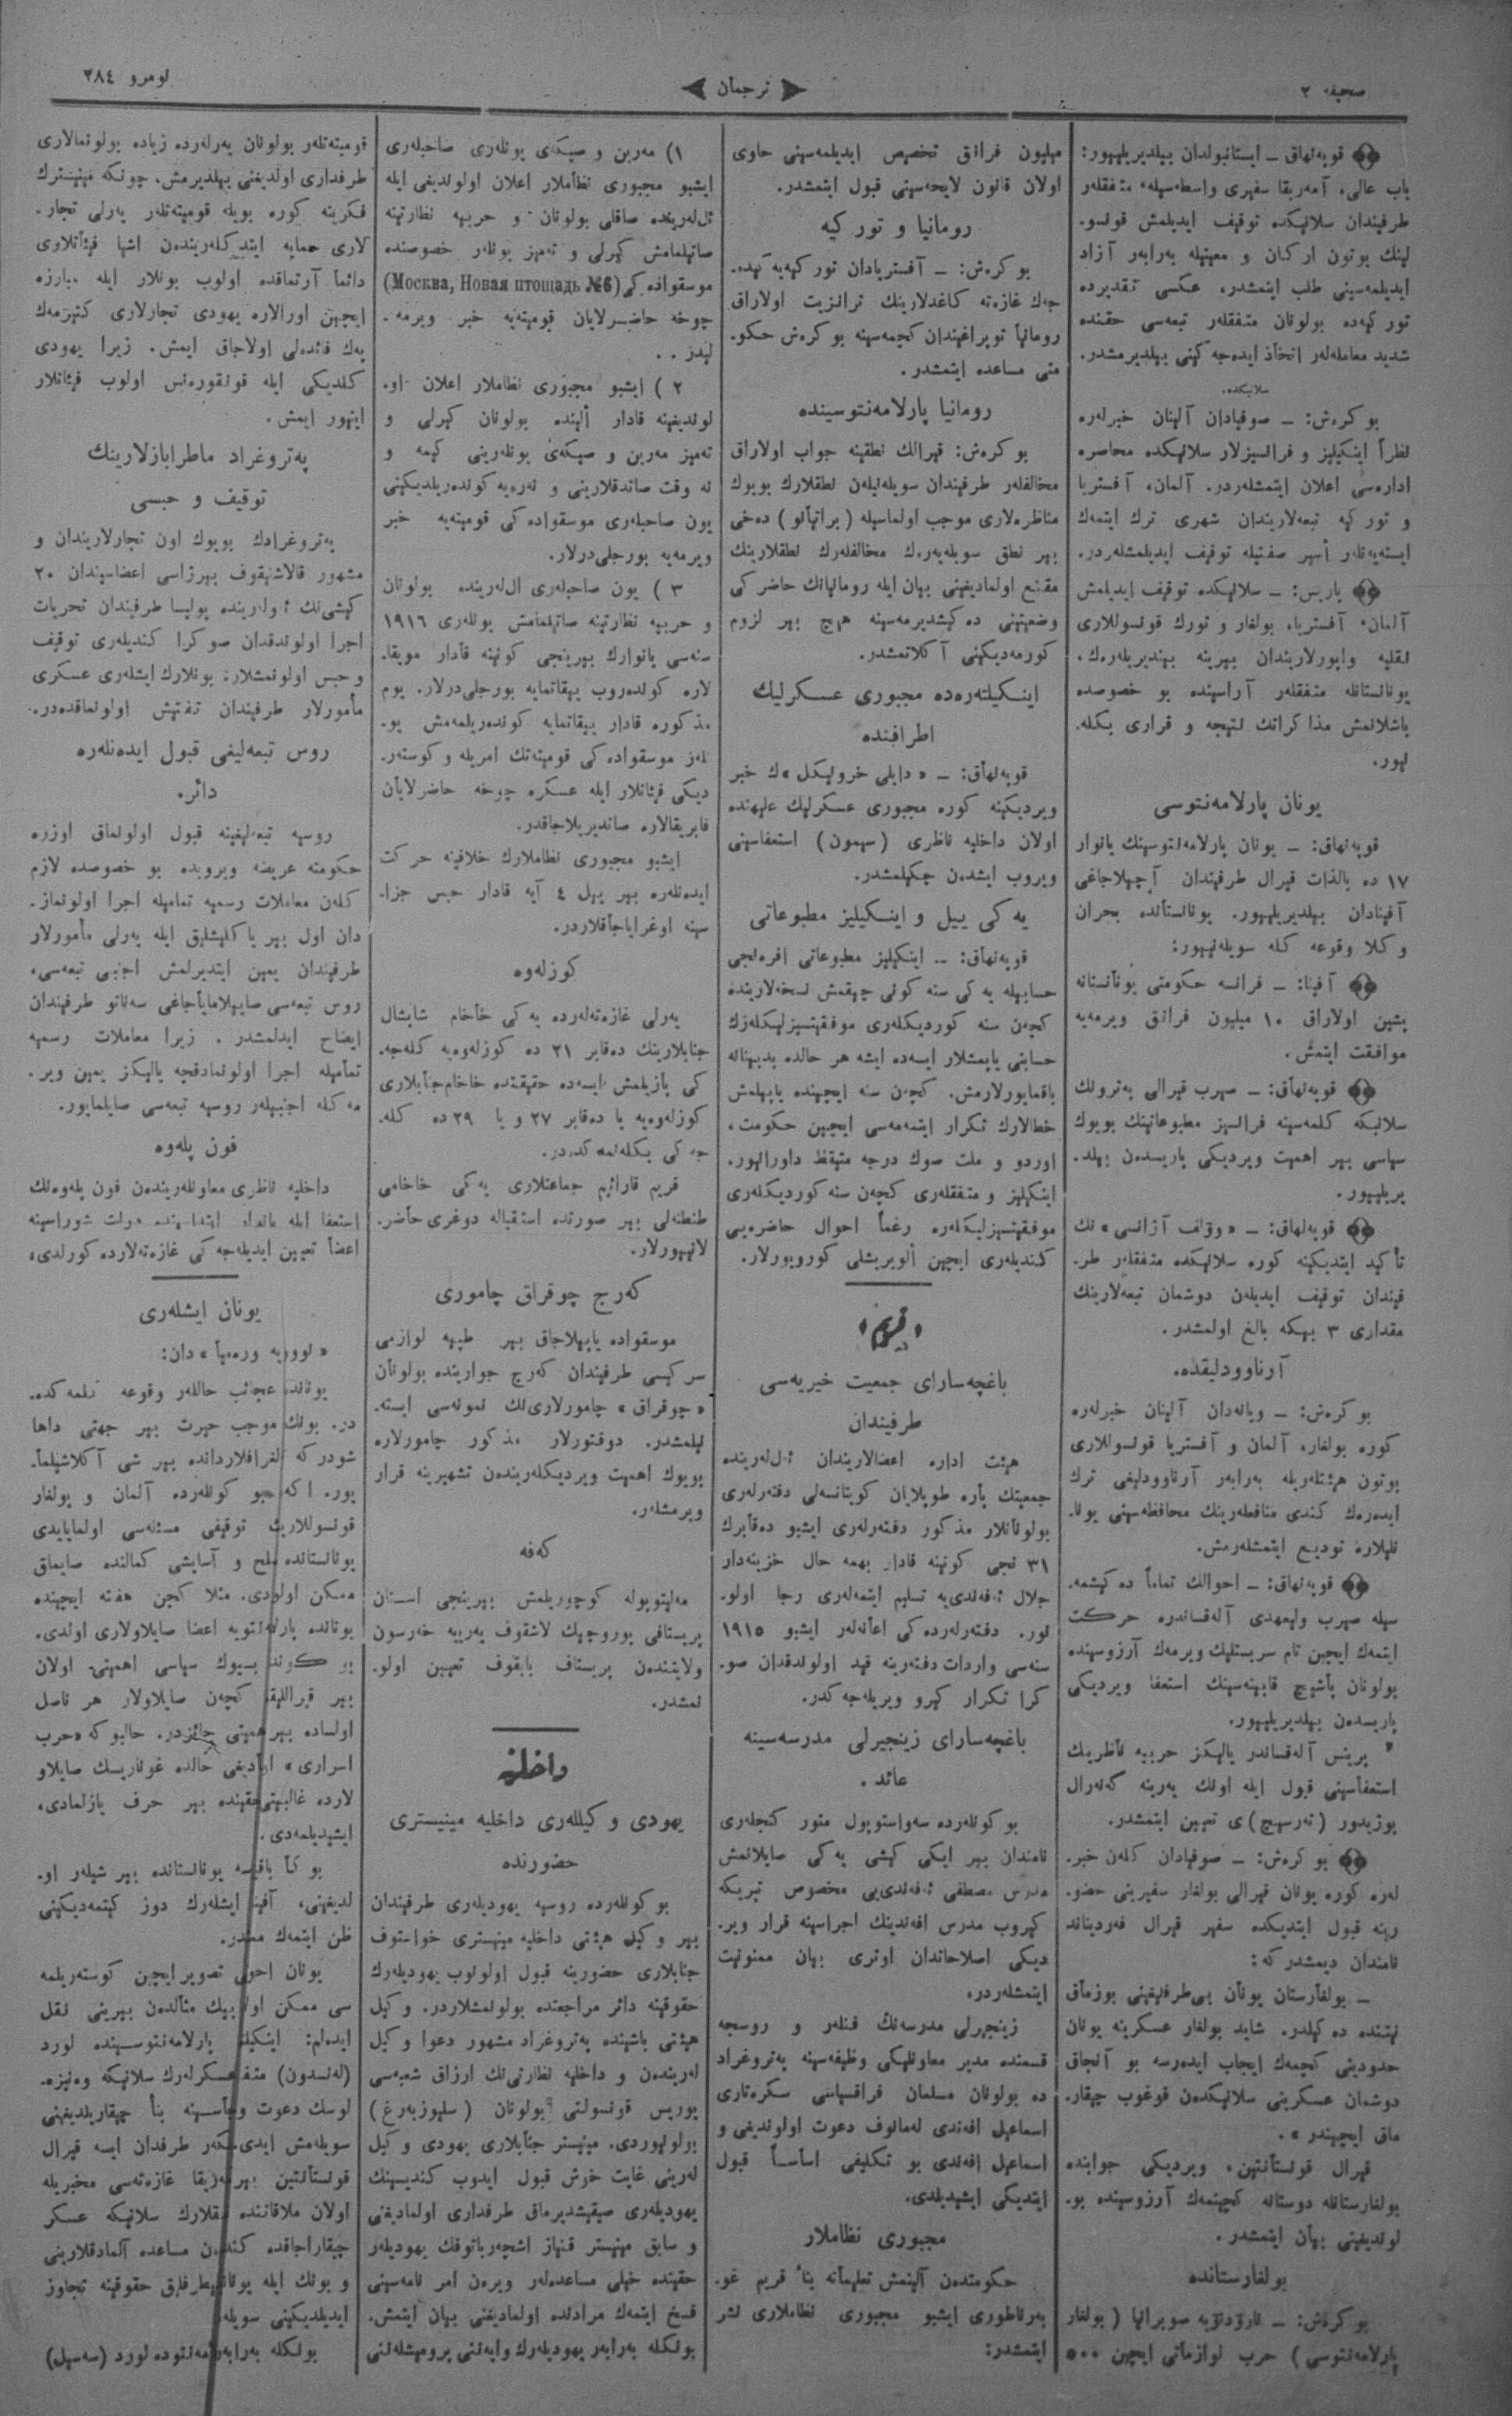 صحیفه ٢
ترجمان
نومرو ٢٨٤
قوپه‌نهاق: – ایستانبولدان بیلدیریلیور:
باب عالی، آمه‌ریقا سفیری واسطه‌سیله، متفقلر
طرفیندان سلانیکده توقیف ایدیلمش قونسو-
لینك بوتون ارکان و معیتیله به‌رابه‌ر آزاد
ایدیلمه‌سینی طلب ایتمشدر، عکسی تقدیرده
تورکیه‌ده بولونان متفقلر تبعه‌سی حقنده
شدید معامله‌لر اتخاذ ایده‌جه‌کینی بیلدیرمشدر.
سلانیکده.
بوکره‌ش: – صوفیادان آلینان خبرلره
نظراً اینگلیز و فرانسیزلر سلانیکده محاصره
اداره‌سی اعلان ایتمشله‌ردر. آلمان، آفستریا
و تورکیه تبعه‌لاریندان شهری ترك ایتمك
ایسته‌یه‌نلر أسیر صفتیله توقیف ایدیلمشله‌ردر.
پاریس: – سلانیکده توقیف ایدیلمش
آلمان، آفستریا، بولغار و تورك قونسوللاری
نقلیه واپورلاریندان بیرینه بیندیریله‌رك،
یونانستانله متفقلر آراسینده بو خصوصده
باشلانمش مذاکراتك نتیجه و قراری بکله-
نیور.
یونان پارلامه‌نتوسی
قوپه‌نهاق: – یونان پارلامه‌نتوسینك یانوار
١٧ ده بالذات قیرال طرفیندان آچیلاجاغی
آفینادان بیلدیریلیور. یونانستانده بحران
وکلا وقوعه کله سویله‌نیور:
آفینا: – فرانسه حکومتی یونانستانه
پشین اولاراق ١٠ میلیون فرانق ویرمه‌یه
موافقت ایتمش.
قوپه‌نهاق: – صیرب قیرالی په‌ترونك
سلانیکه کلمه‌سینه فرانسیز مطبوعاتینك بویوك
سیاسی بیر اهمیت ویردیکی پاریسدن بیلد-
یریلیور.
قوپه‌نهاق: – «وولف آژانسی» نك
تأکید ایتدیکینه کوره سلانیکده متفقلر طر-
فیندان توقیف ایدیلن دوشمان تبعه‌لارینك
مقداری ٣ بیکه بالغ اولمشدر.
آرناوودلیقده.
بوکره‌ش: – ویانه‌دان آلینان خبرلره
کوره بولغار، آلمان و آفستریا قونسوللاری
بوتون هیئتلریله به‌رابه‌ر آرناوودلیغی ترك
ایده‌رك کندی منافعله‌رینك محافظه‌سینی یونا-
نلیلاره تودیع ایتمشله‌رمش.
قوپه‌نهاق: – احوالك تماماً ده‌کیشمه-
سیله صیرب ولیعهدی آله‌قساندره حرکت
ایتمك ایچین تام سربستلیك ویرمه‌ك آرزوسینده
بولونان پاشیچ قابینه‌سینك استعفا ویردیکی
پاریسدن بیلدیریلیور.
پرینس آله‌قساندر یالیکز حربیه ناظرینك
استعفاسینی قبول ایله اونك یه‌رینه گه‌نه‌رال
بوژیدور (ته‌رسیچ)ی تعیین ایتمشدر.
بوکره‌ش: – صوفیادان کله‌ن خبر-
لره کوره یونان قیرالی بولغار سفیرینی حضو-
رینه قبول ایتدیکده سفیر قیرال فه‌ردیناند
نامندان دیمشدر که:
– بولغارستان یونان بی‌طرفلیغینی بوزماق
نیتنده ده‌کیلدر. شاید بولغار عسکرینه یونان
حدودینی کچمه‌ك ایجاب ایده‌رسه بو آنجاق
دوشمان عسکرینی سلانیکدن قوغوب چیقار-
ماق ایچیندر».
قیرال قونستأنتین، ویردیکی جوابنده
بولغارستانله دوستانه کچینمه‌ك آرزوسینده بو-
لوندیغینی بیان ایتمشدر.
بولغارستانده
بوکره‌ش: – نارودنویه صوبرانیا (بولغار
پارلامه‌نتوسی) حرب لوازماتی ایچین ٥٠٠
میلیون فرانق تخصیص ایدیلمه‌سینی حاوی
اولان قانون لایحه‌سینی قبول ایتمشدر.
رومانیا و تورکیه
بوکره‌ش: – آفستریادان تورکیه‌یه کیده-
جه‌ك غازه‌ته کاغدلارینك ترانزیت اولاراق
رومانیا توپراغیندان کچمه‌سینه بوکره‌ش حکو-
متی مساعده ایتمشدر.
رومانیا پارلامه‌نتوسینده
بوکره‌ش: قیرالك نطقینه جواب اولاراق
مخالفلر طرفیندان سویله‌نیلن نطقلارك بویوك
مناظره‌لاری موجب اولماسیله (براتیانو) ده‌خی
بیر نطق سویله‌یه‌رك مخالفلرك نطقلارینك
مقنع اولمادیغینی بیان ایله رومانیانك حاضرکی
وضعیتینی ده‌کیشدیرمه‌سینه هیچ بیر لزوم
کورمه‌دیکینی آکلاتمشدر.
اینگیلته‌ره‌ده مجبوری عسکرلیك
اطرافنده
قوپه‌نهاق: – «دایلی خرونیکل»ك خبر
ویردیکینه کوره مجبوری عسکرلیك علیهنده
اولان داخلیه ناظری (سیمون) استعفاسینی
ویروب ایشدن چکیلمشدر.
یه‌کی ییل و اینگیلیز مطبوعاتی
قوپه‌نهاق: – اینگلیز مطبوعاتی افره‌نجی
حسابیله یه‌کی سنه کونی چیقمش نسخه‌لارینده
کچن سنه کوردیکله‌ری موفقیتسیزلیکله‌رك
حسابنی یاپمشلار ایسه‌ده ایشه هر حالده بدبینانه
باقمایورلارمش. کچن سنه ایچینده یاپیلمش
خطالارك تکرار ایتمه‌مه‌سی ایچین حکومت،
اوردو و ملت صوك درجه متیقظ داورانیور.
اینگلیز و متفقله‌ری کچن سنه کوردیکله‌ری
موفقیتسیزلیکله‌ره رغماً احوال حاضره‌یی
کندیله‌ری ایچین ألویریشلی کورویورلار.
قریم
باغچه‌سارای جمعیت خیریه‌سی
طرفیندان
هیئت اداره اعضالاریندان ئه‌لله‌رینده
جمعیتك پاره طوپلایان کویتانسه‌لی دفته‌رله‌ری
بولونانلار مذکور دفته‌رله‌ری ایشبو ده‌قابرك
٣١ نجی کونینه قادار بهمه حال خزینه‌دار
جلال ئه‌فه‌ندی‌یه تسلیم ایتمه‌له‌ری رجا اولو-
نور. دفته‌رله‌رده‌کی اعانه‌لر ایشبو ١٩١٥
سنه‌سی واردات دفته‌رینه قید اولوندقدان صو-
کرا تکرار کیرو ویریله‌جه‌کدر.
باغچه‌سارای زینجیرلی مدرسه‌سینه
عائد.
بو کونله‌رده سه‌واستوپول منور کنجله‌ری
نامندان بیر ایکی کیشی یه‌کی صایلانمش
مدرس مصطفی ئه‌فه‌ندی‌یی مخصوص تبریکه
کیروب مدرس افه‌ندینك اجراسینه قرار ویر-
دیکی اصلاحاتدان اوتری بیان ممنونیت
ایتمشله‌ردر.
زینجیرلی مدرسه‌نك فنله‌ر و روسچه
قسمنده مدیر معاونلیکی وظیفه‌سینه په‌تروغراد
ده بولونان مسلمان فراقسیاسی سکره‌تاری
اسماعیل افه‌ندی له‌مانوف دعوت اولوندیغی و
اسماعیل افه‌ندی بو تکلیفی اساساً قبول
ایتدیکی ایشیدیلدی.
مجبوری نظاملار
حکومتدن آلینمش تعلیماته بناً قریم غو-
به‌رناطوری ایشبو مجبوری نظاملاری نشر
ایتمشدر:
١) مه‌رین و صیکه‌ی یونله‌ری صاحبله‌ری
ایشبو مجبوری نظاملار اعلان اولوندیغی ایله
ئه‌لله‌رینده صاقلی بولونان و حربیه نظارتینه
صاتیلمامش کیرلی و ته‌میز یونلر خصوصنده
موسقواده‌کی (Москва, Новая площадь №6)
چوخه حاضرلایان قومیته‌یه خبر ویرمه-
لیدر..
٢) ایشبو مجبوری نظاملار اعلان او-
لوندیغینه قادار ألینده بولونان کیرلی و
ته‌میز مه‌رین و صیکه‌ی یونله‌رینی کیمه و
نه وقت صاتدقلارینی و نه‌ره‌یه کونده‌ریلدیکینی
یون صاحبله‌ری موسقواده‌کی قومیته‌یه خبر
ویرمه‌یه بورجلی‌درلار.
٣) یون صاحبله‌ری ال‌له‌رینده بولونان
و حربیه نظارتینه صاتیلمامش یونله‌ری ١٩١٦
سنه‌سی یانوارك بیرینجی کونینه قادار مویقا-
لاره کونده‌روب ییقاتمایه بورجلی‌درلار. یوم
مذکوره قادار ییقاتمایه کونده‌ریلمه‌مش یو-
نلر موسقواده‌کی قومیته‌تك امریله و کوسته‌ر-
دیکی فیئاتلار ایله عسکره چوخه حاضرلایان
فابریقالاره صاتدیریلاجاقدر.
ایشبو مجبوری نظاملارك خلافینه حرکت
ایده‌نله‌ره بیر ییل ٤ آیه قادار حبس جزا-
سینه اوغرایاجاقلاردر.
کوزله‌وه
یه‌رلی غازه‌ته‌له‌رده یه‌کی خاخام شاپشال
جنابلارینك ده‌قابر ٢١ ده کوزله‌وه‌یه کله‌جه-
کی یازیلمش ایسه‌ده حقیقتده خاخام‌جنابلاری
کوزله‌وه‌یه یا ده‌قابر ٢٧ و یا ٢٩ ده کله-
جه‌کی بکله‌نمه‌کده‌در.
قریم قارائیم جماعتلاری یه‌کی خاخامی
طنطنه‌لی بیر صورتده استقباله دوغری حاضر-
لانیورلار.
که‌رچ چوقراق چاموری
موسقواده یاپیلاجاق بیر طبیه لوازمی
سرکیسی طرفیندان که‌رچ جوارینده بولونان
«چوقراق» چامورلاری‌نك نمونه‌سی ایسته-
نیلمشدر. دوقتورلار مذکور چامورلاره
بویوك اهمیت ویردیکله‌ریندن تشهیرینه قرار
ویرمشلر.
که‌فه
مه‌لیتوپوله کوچوریلمش بیرینجی استان
پریستافی یوروچیك لاشقوف یه‌رینه خه‌رسون
ولایتندن پریستاف بابقوف تعیین اولو-
نمشدر.
داخلیه
یهودی وکیلله‌ری داخلیه مینیستری
حضورنده
بو کونله‌رده روسیه یهودیله‌ری طرفیندان
بیر وکیل هیئتی داخلیه مینیستری خواستوف
جنابلاری حضورینه قبول اولونوب یهودیله‌رك
حقوقینه دائر مراجعتده بولونمشلاردر. وکیل
هیئتی باشینده په‌تروغراد مشهور دعوا وکیل
له‌ریندن و داخلیه نظارتی‌نك ارزاق شعبه‌سی
یوریس قونسولتی بولونان (سلیوزبه‌رغ)
بولونیوردی. مینیستر جنابلاری یهودی وکیل
له‌رینی غایت خوش قبول ایدوب کندیسینك
یهودیله‌ری صیقیشدیرماق طرفداری اولمادیغی
و سابق مینیستر قنیاز اشچه‌رباتوفك یهودیلر
حقینده خیلی مساعده‌لر ویرن امر نامه‌سینی
فسخ ایتمه‌ك مرادنده اولمادیغنی بیان ایتمش.
بونکله به‌رابه‌ر یهودیله‌رك وایه‌ننی پرومیشله‌ننی
قومیته‌تلر بولونان یه‌رله‌رده زیاده بولونمالاری
طرفداری اولدیغنی بیلدیرمش. چونکه مینیسترك
فکرینه کوره بویله قومیته‌تلر یه‌رلی تجار-
لاری حمایه ایتدیکله‌ریندن اشیا فیئاتلاری
دائما آرتماقده اولوب بونلار ایله مبارزه
ایچین اورالاره یهودی تجارلاری کتیرمه‌ك
په‌ك فائده‌لی اولاجاق ایمش. زیرا یهودی
کلدیکی ایله قونقوره‌نس اولوب فیئاتلار
اینیور ایمش.
په‌تروغراد ماطرابازلارینك
توقیف و حبسی
په‌تروغرادك بویوك اون تجارلاریندان و
مشهور قالاشنیقوف بیرژاسی اعضاسیندان ٢٠
کیشی‌نك ئه‌وله‌رینده پولیسا طرفیندان تحریات
اجرا اولوندقدان صوکرا کندیله‌ری توقیف
و حبس اولونمشلار. بونلارك ایشله‌ری عسکری
مأمورلار طرفیندان تفتیش اولونماقده‌در.
روس تبعه‌لیغی قبول ایده‌نله‌ره
دائر.
روسیه تبعه‌لیغینه قبول اولونماق اوزره
حکومته عریضه ویروبده بو خصوصده لازم
کله‌ن معاملات رسمیه تمامیله اجرا اولونماز-
دان اول بیر یاکلیشلیق ایله یه‌رلی مأمورلار
طرفیندان یمین ایتدیرلمش اجنبی تبعه‌سی،
روس تبعه‌سی صاییلامایاجاغی سه‌ناتو طرفیندان
ایضاح ایدلمشدر. زیرا معاملات رسمیه
تمامیله اجرا اولونمادقچه یالیکز یمین ویر-
مه‌کله اجنبیلر روسیه تبعه‌سی صایلمایور.
فون پله‌وه
داخلیه ناظری معاونله‌ریندن فون پله‌وه‌نك
استعفا ایله یانوار ابتداسینده دولت شوراسینه
اعضا تعیین ایدیله‌جه‌کی غازه‌ته‌لارده کورلدی.
یونان ایشله‌ری
«نوویه وره‌میا»دان:
یونانده عجائب حاللر وقوعه کلمه‌کده-
در. بونك موجب حیرت بیر جهتی داها
شودرکه تلغرافلاردانده بیر شی آکلاشیلما-
یور. اکه بو کونله‌رده آلمان و بولغار
قونسوللارینك توقیفی مسئله‌سی اولمایایدی
یونانستانده صلح و آسایشی کمالنده صایماق
ممکن اولوردی. مثلا کچن هفته ایچینده
یونانده پارلامه‌نتویه اعضا صایلاولاری اولدی.
بو کونده بویوك سیاسی اهمیتی اولان
بیر قیراللیقده کچن صایلاولار هر ناصل
اولساده بیر اهمیتی حائزدر. حالبوکه «حرب
اسراری» اولدیغی حالده غوناریسك صایلاو
لارده غالبیتی حقینده بیر حرف یازلمادی،
ایشیدیلمه‌دی.
بوکا باقیلسه یونانستانده بیر شیلر او-
لدیغینی، آفینا ایشله‌رك دوز کیتمه‌دیکینی
ظن ایتمه‌ك ممکندر.
یونان احوالی تصویر ایچین کوسته‌ریلمه
سی ممکن اولان بیك مثالدن بیرینی نقل
ایده‌لم: اینگیلیز پارلامه‌نتوسینده لورد
(له‌نسدون) متفق عسکرله‌رك سلانیکه وه‌نیزه-
لوسك دعوت و رجاسینه بناً چیقاریلدیغینی
سویله‌مش ایدی. دیگر طرفدان ایسه قیرال
قونستأنتین بیر آمه‌ریقا غازه‌ته‌سی مخبریله
اولان ملاقاتنده متفقلارك سلانیکه عسکر
چیقاراجاقده کندیدن مساعده آلمادقلارینی
و بونك ایله یونان بیطرفلیق حقوقینه تجاوز
ایدیلدیکینی سویله‌دی.
بونکله به‌رابه‌ر پارلامه‌نتوده لورد (سه‌سیل)